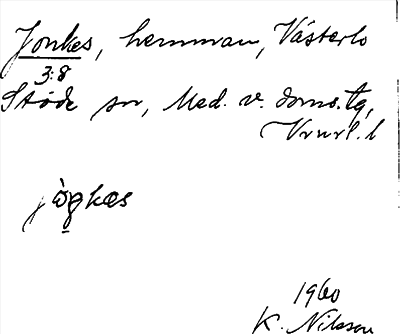 Jonkes, hemman, Västerlo
3:8
Stöde sn, Med. v. doms. tg,
Vrnrl. l
jòŋkæs
1960
K. Nilsson